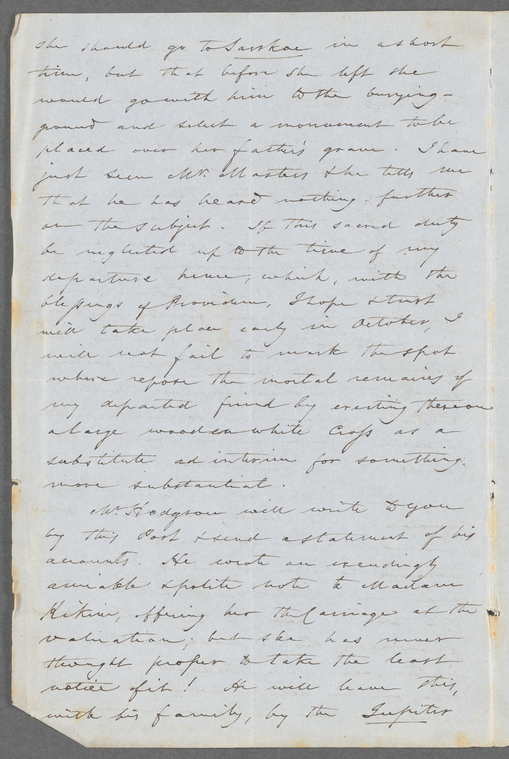 she should go to Sarskae in a short
time, but that before she left she
would go with him to the burying-
ground and select a monument to be
placed over her father's grave. I have
just seen Mr. Masters & he tells me
that he has heard nothing further
on the subject. If this sacred duty
be neglected up to the time of my
departure hence, which, with the
blessings of Providence, I hope & trust
will take place early in October, I
will not fail to mark the spot
where repose the mortal remains of
my departed friend by erecting thereon
a large wooden white Cross as a
substitute ad interim for something
more substantial.
Mr. Hodgson will write to you
by this Post & send a statement of his
accounts. He wrote an exceedingly
amiable & polite note to Madame
Kikine, offering her the Carriage at the
valuation; but she has never
thought proper to take the least
notice of it! He will leave this,
with his family, by the Jupiter